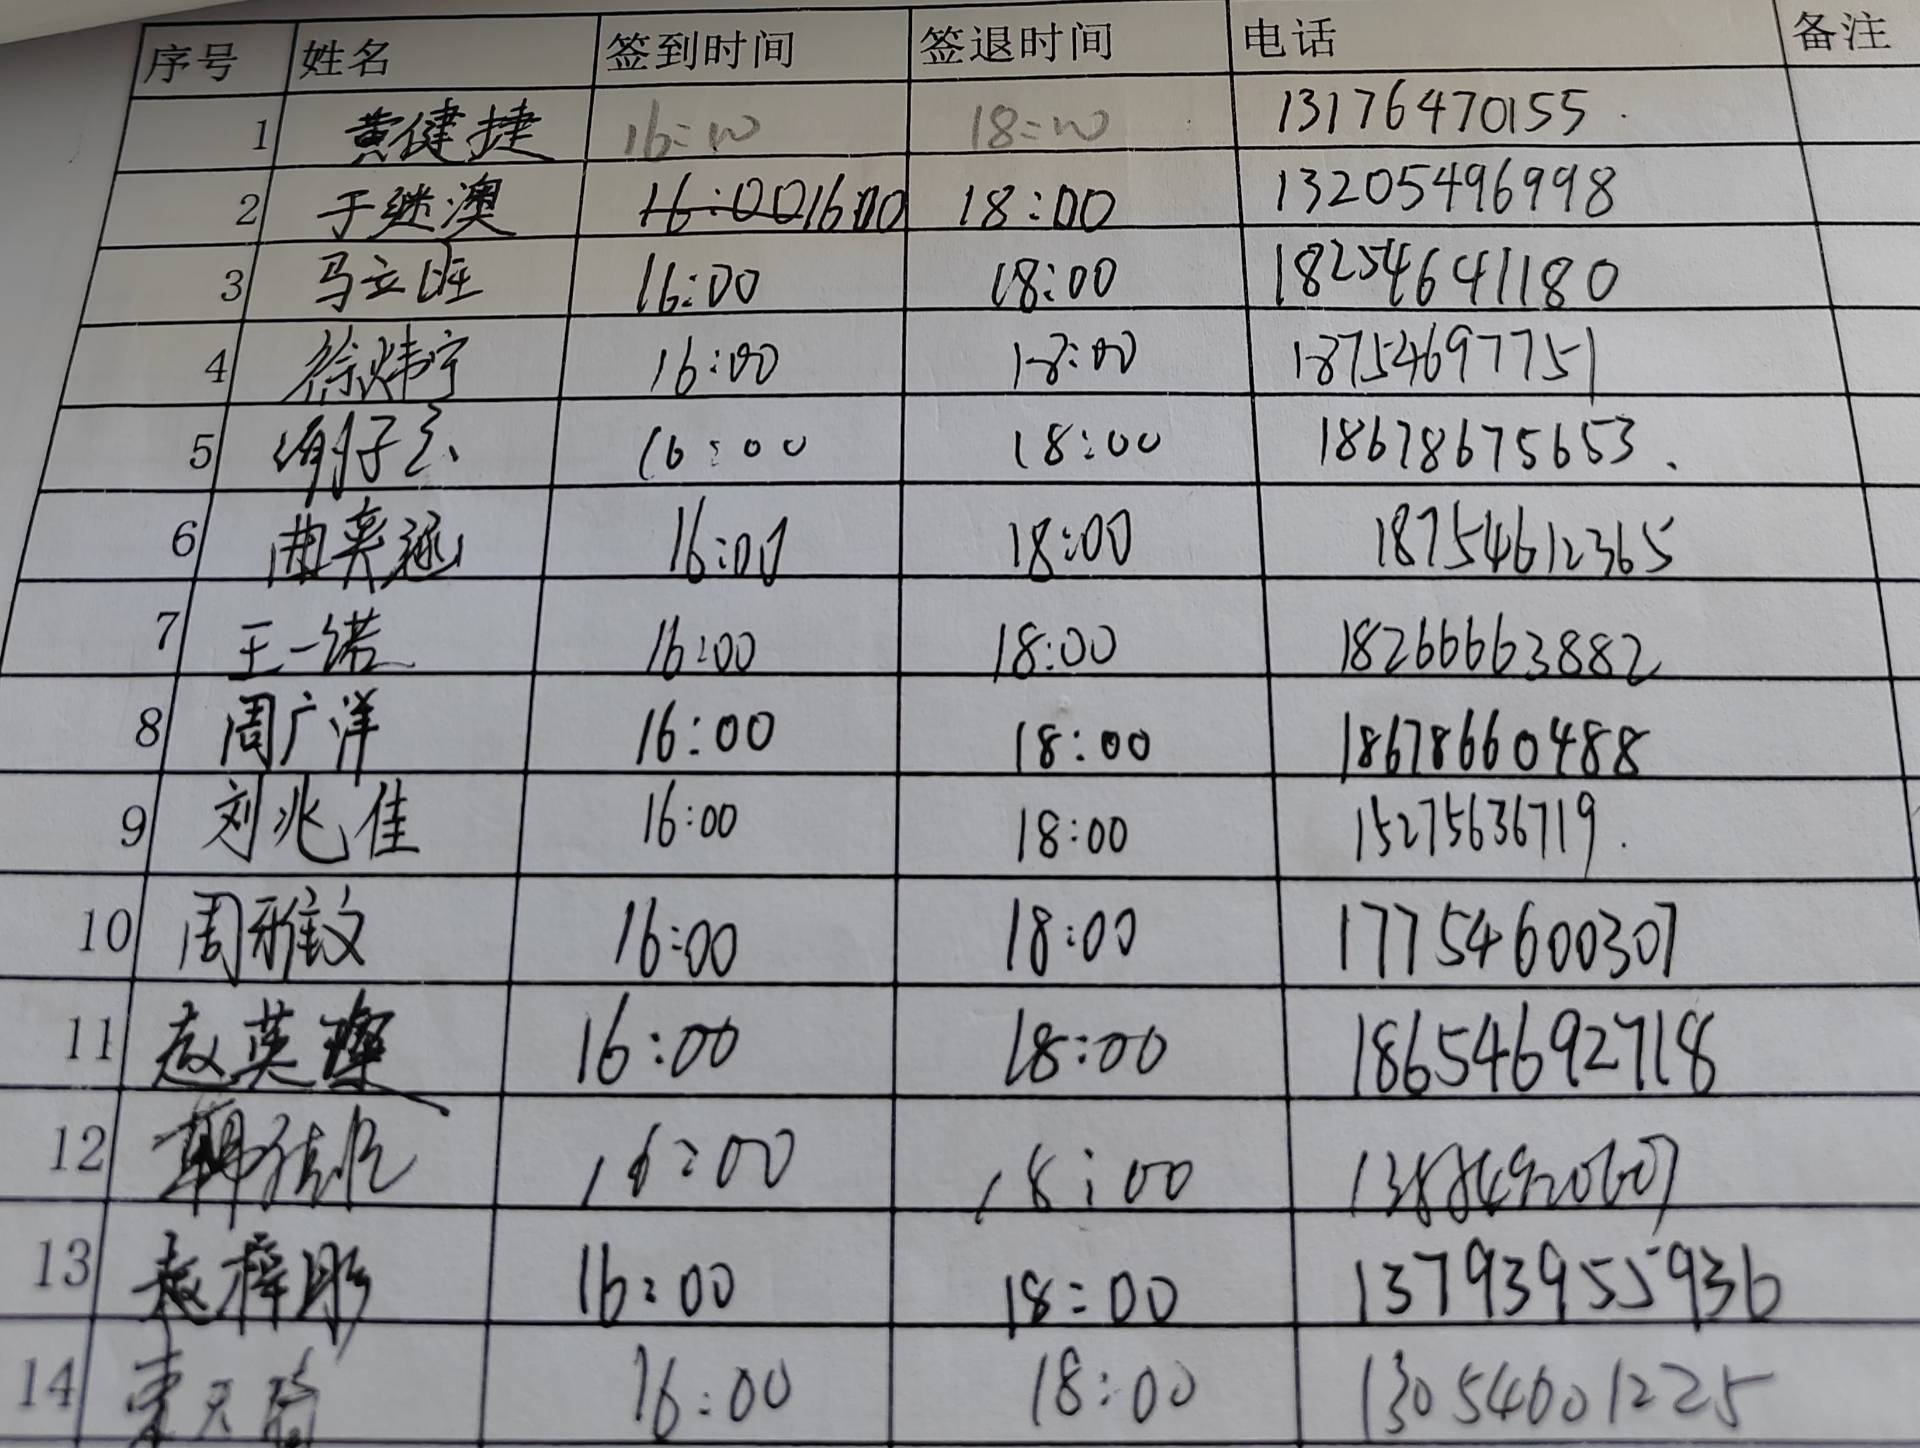 序号 姓名 签到时间 签退时间 电话 备注
1 黄健捷 16:00 18:00 13176470155
2 于继澳 16:00 1600 18:00 13205496998
3 马立旺 16:00 18:00 18254641180
4 徐炜宁 16:00 18:00 18754697751
5 16:00 18:00 18678675653
6 曲奕涵 16:00 18:00 18754612365
7 王一诺 16:00 18:00 18266663882
8 周广洋 16:00 18:00 18678660488
9 刘兆佳 16:00 18:00 15275636719
10 周雅文 16:00 18:00 17754600307
11 赵英璨 16:00 18:00 18654692718
12 16:00 18:00
13 赵梓彤 16:00 18:00 13793955936
14 16:00 18:00 13054601225